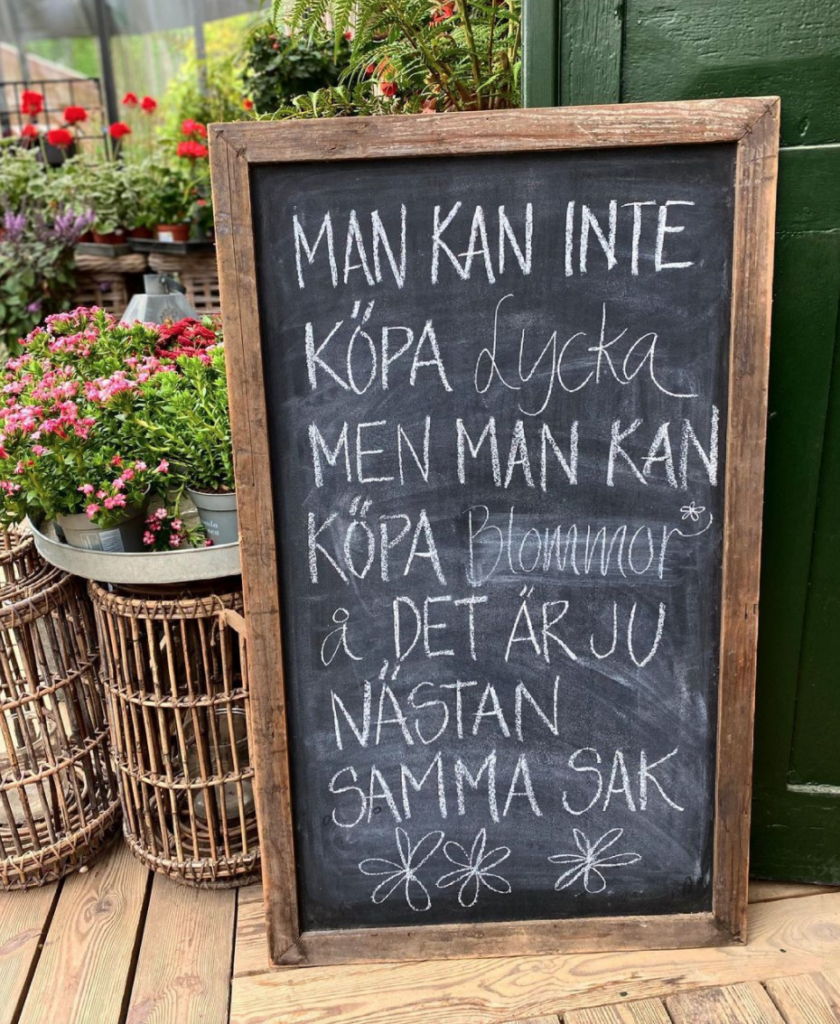 MAN KAN INTE
KÖPA Lycka
MEN MAN KAN
KÖPA Blommor
å DET ÄR JU
NÄSTAN
SAMMA SAK